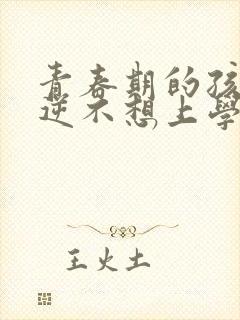 青春期的孩
逆不想上學
王火土